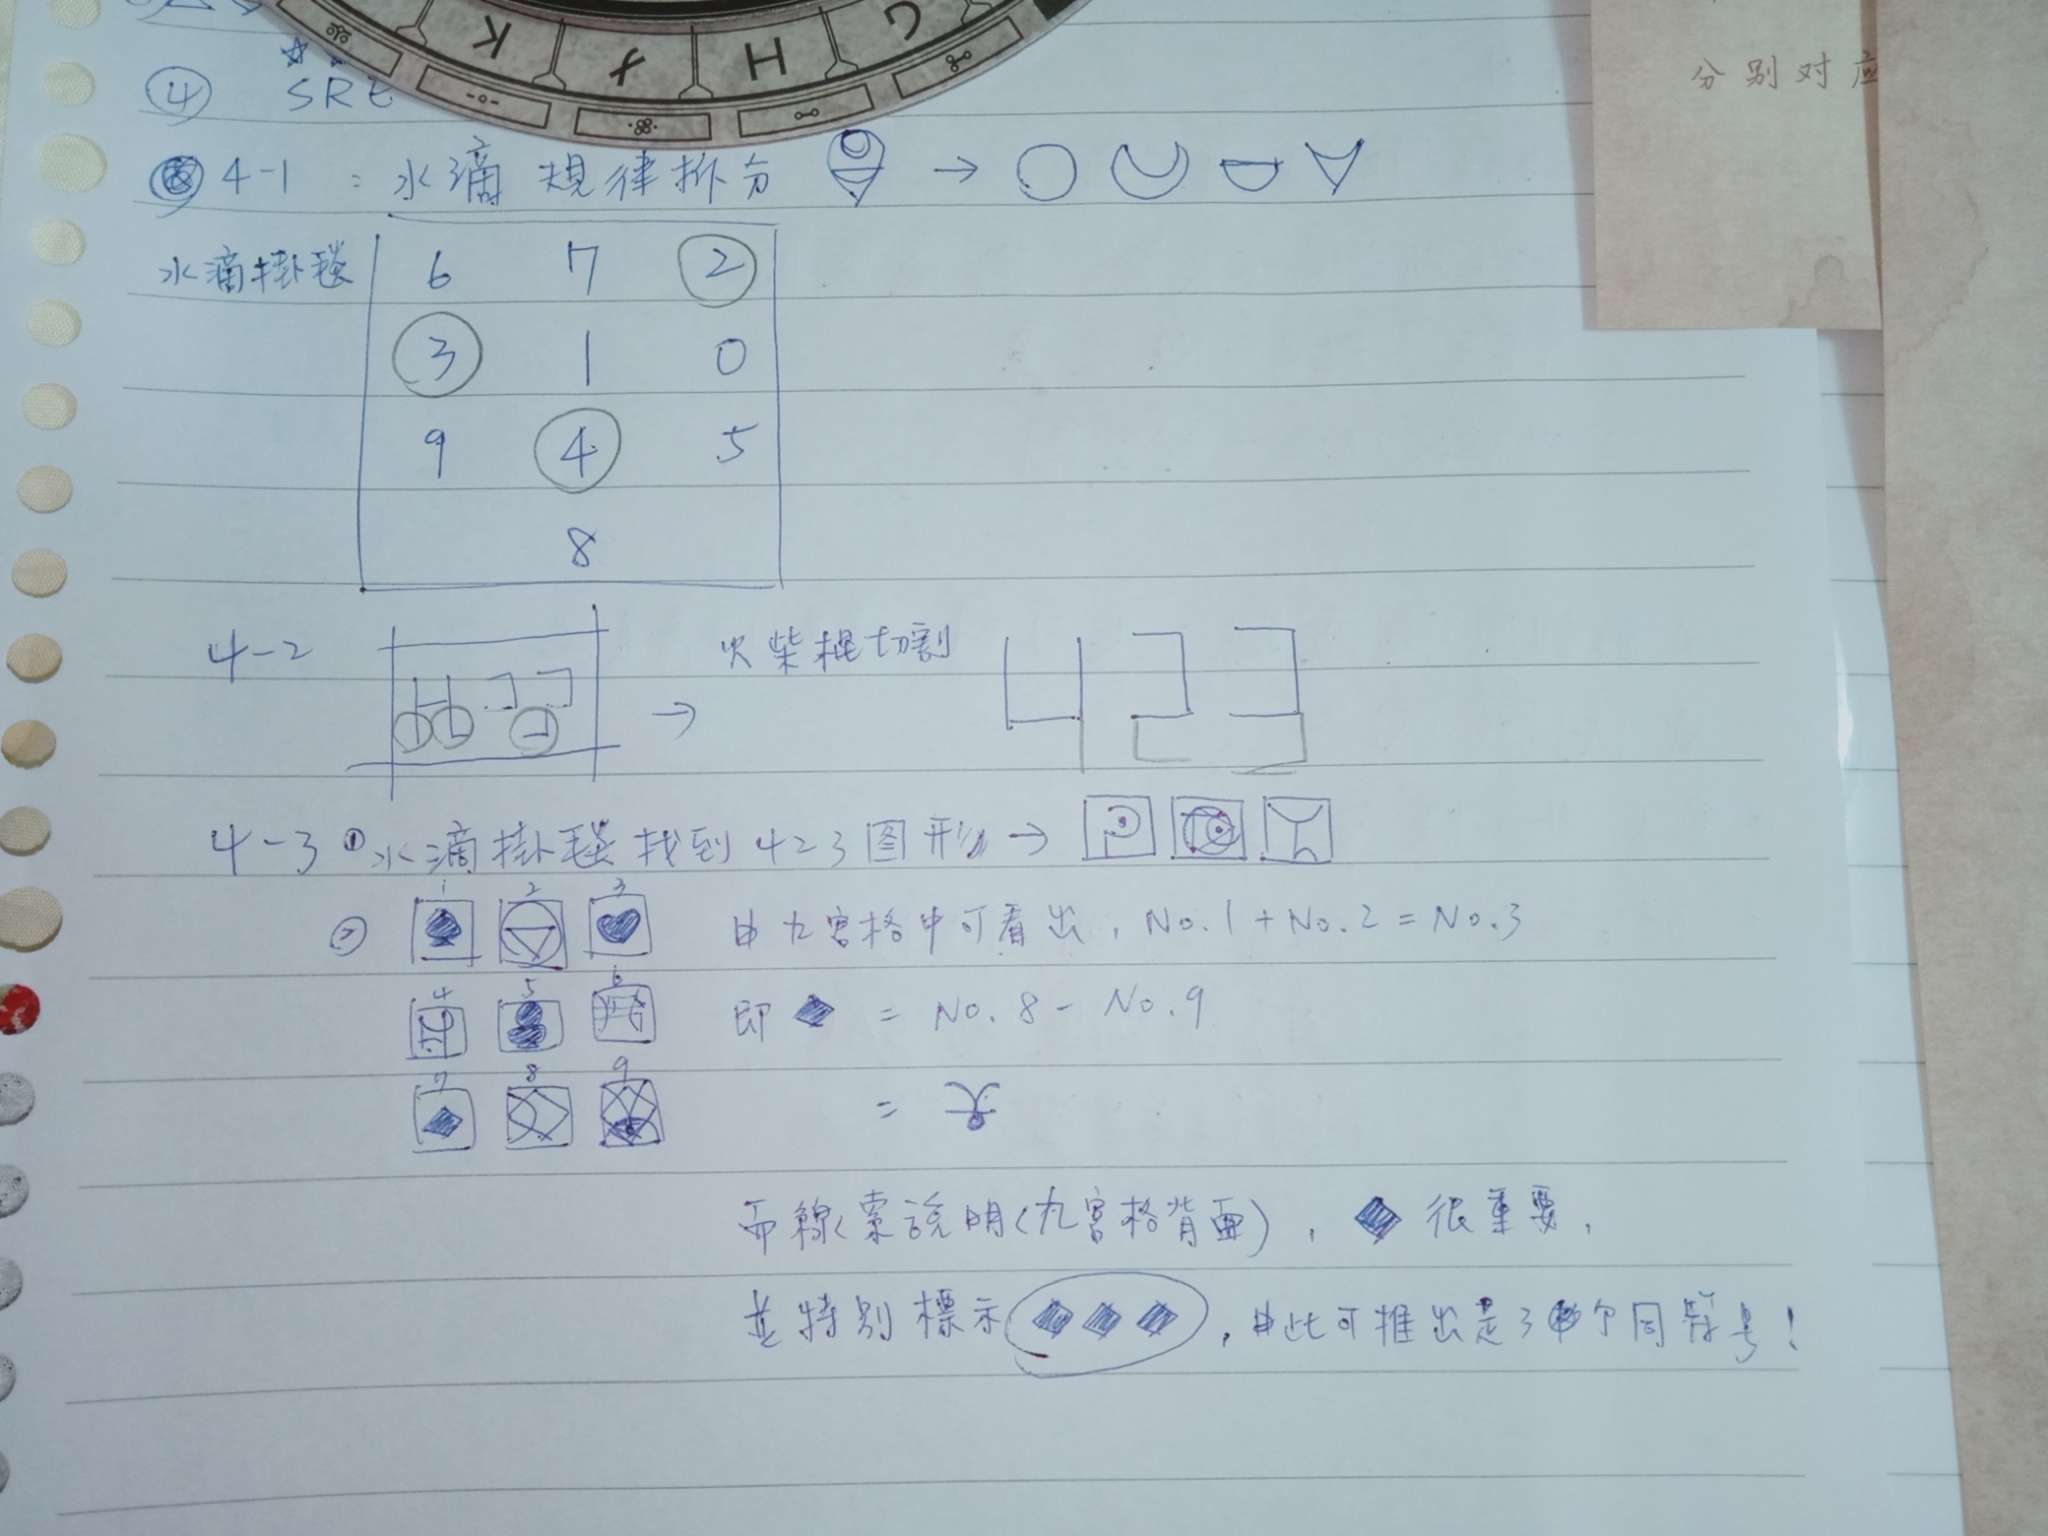 K H G
分别对应
④ SRE
4-1 : 水滴規律拆分 → 
水滴掛毯 6 7 2
3 1 0
9 4 5
8
4-2 → 火柴棍切割 423
4-3 ① 水滴掛毯找到423图形 →
1 2 3
② 由九宮格中可看出, No.1 + No.2 = No.3
4 5 6
即 ◆ = No.8 - No.9
7 8 9
=
而線索說明(九宮格背面), ◆很重要,
並特別標示◆◆◆, 由此可推出是3个同符号!